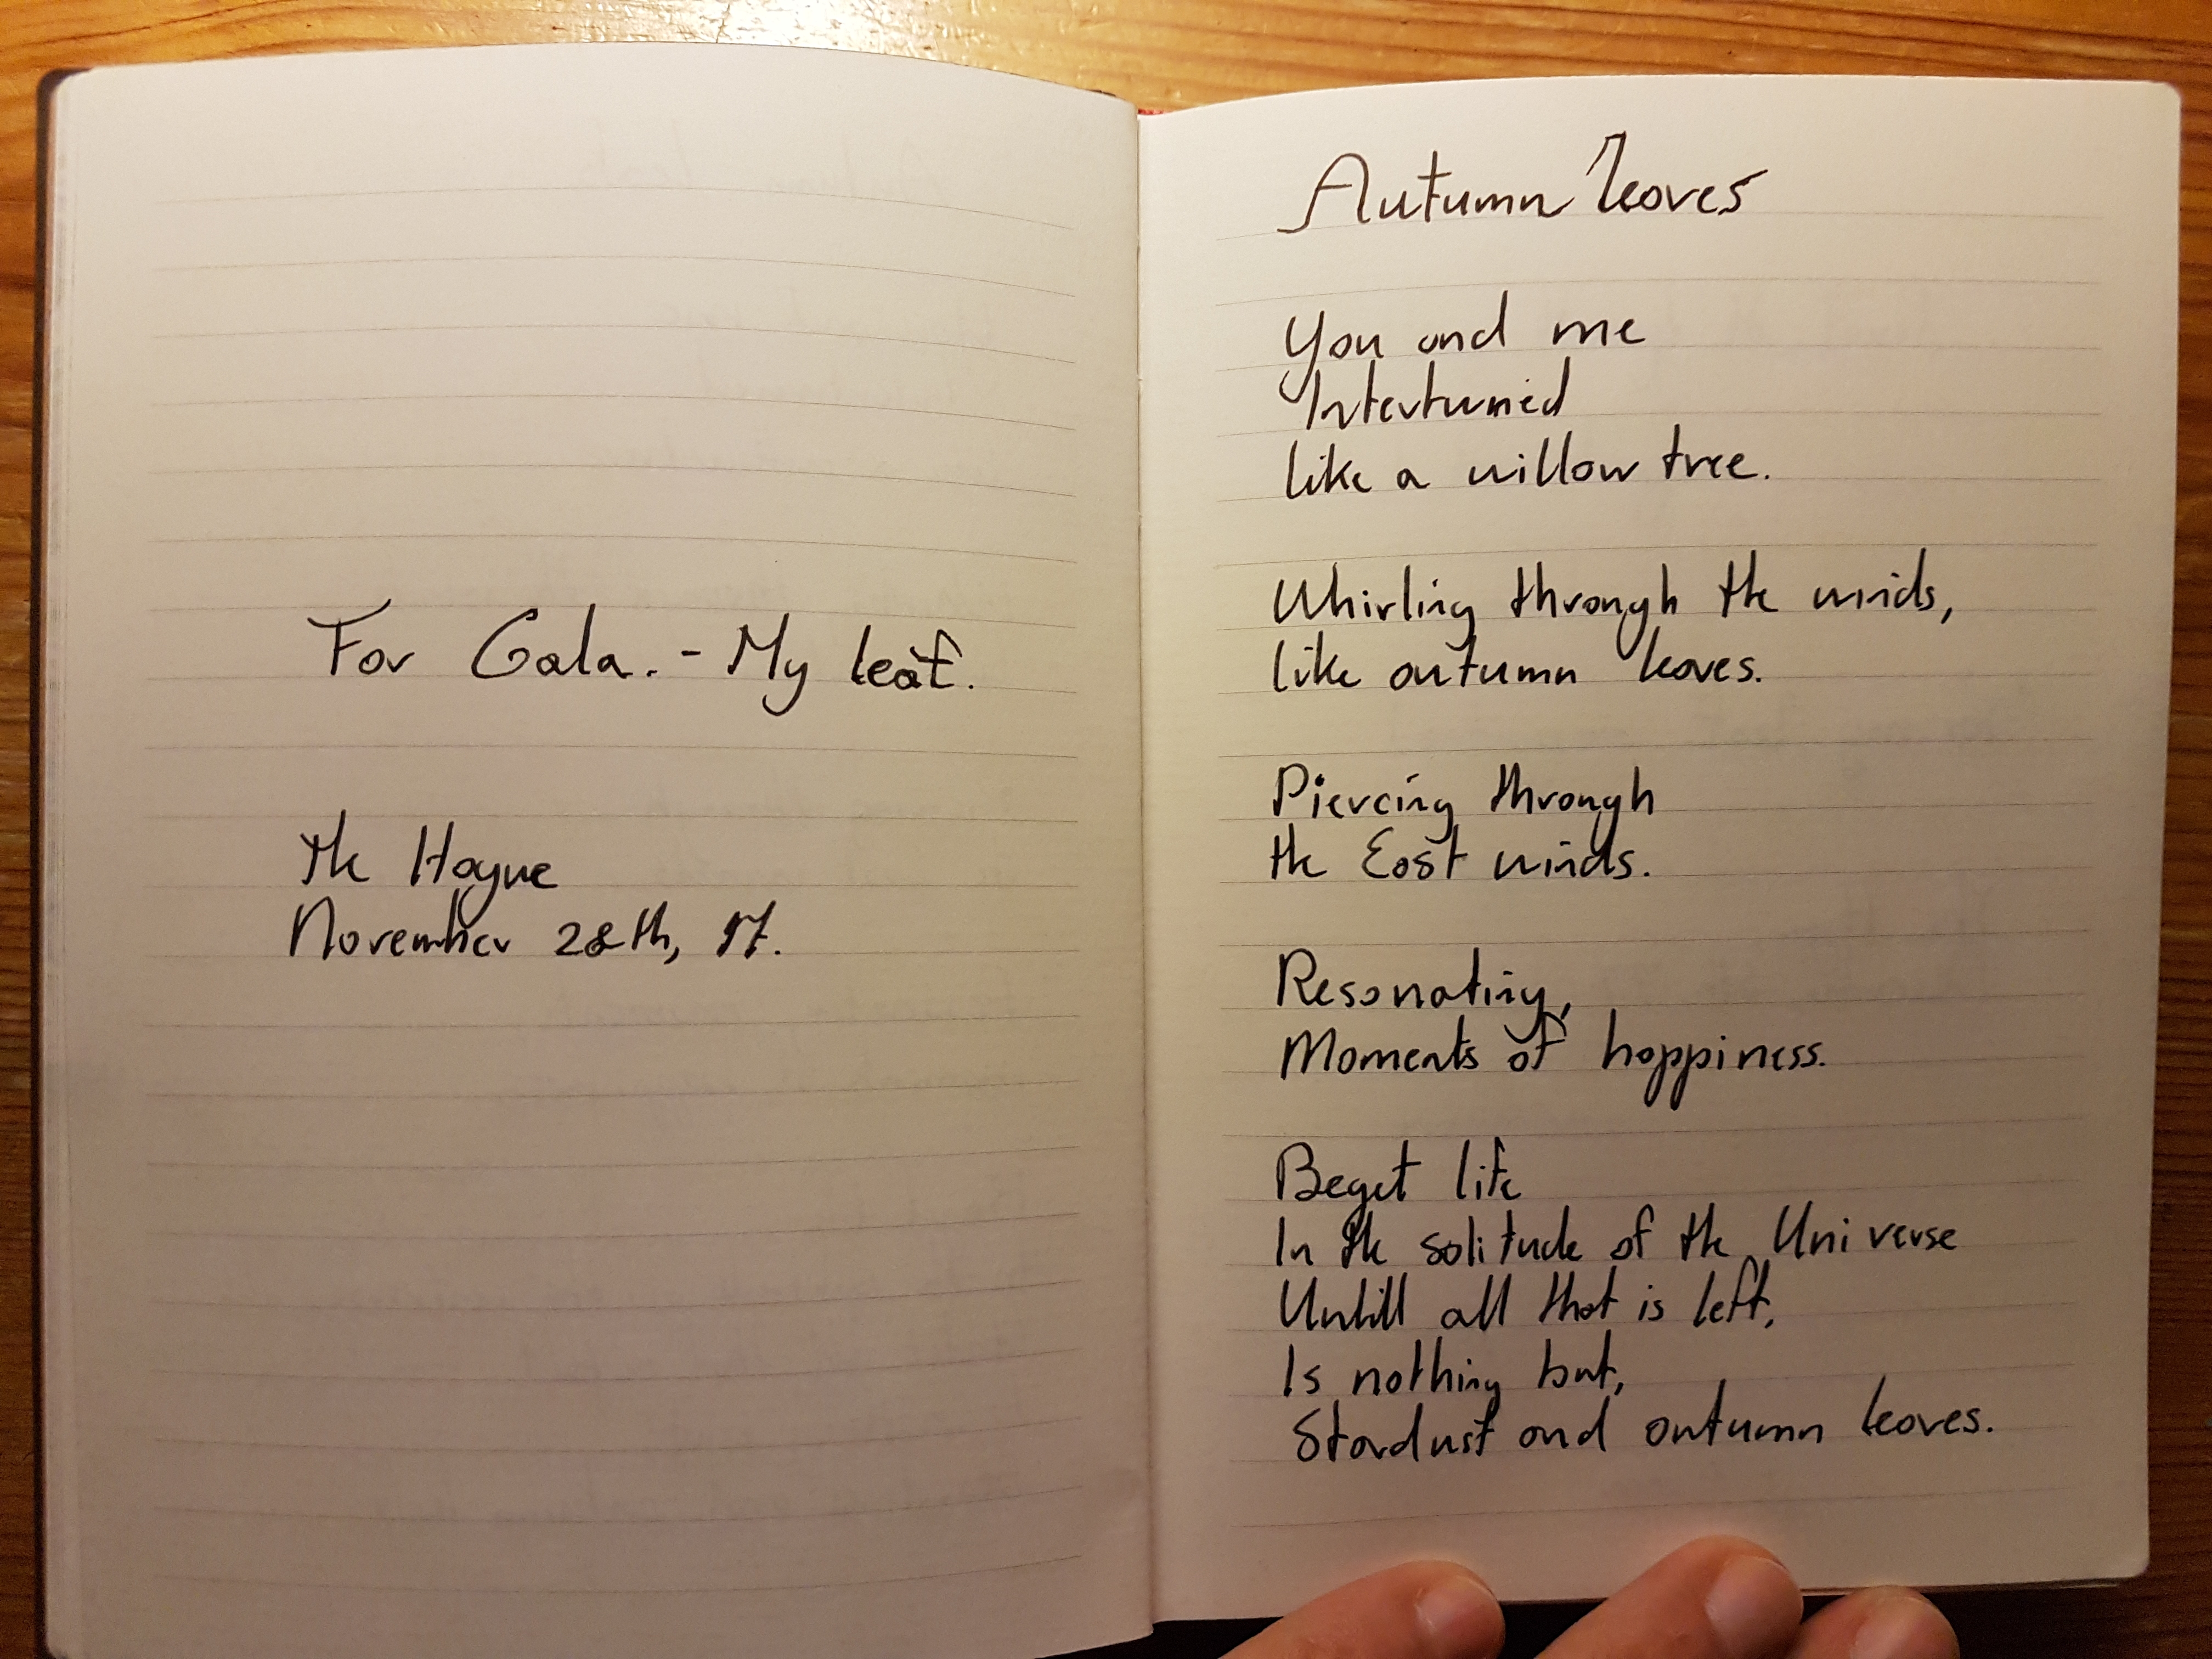 For Gala. - My leaf.
The Hague
November 28th, 17.
Autumn leaves
You and me
Intertwined
like a willow tree.
Whirling through the winds,
like autumn leaves.
Piercing through
the East winds.
Resonating,
Moments of happiness.
Beget life
In the solitude of the Universe
Untill all that is left,
Is nothing but,
Stardust and autumn leaves.